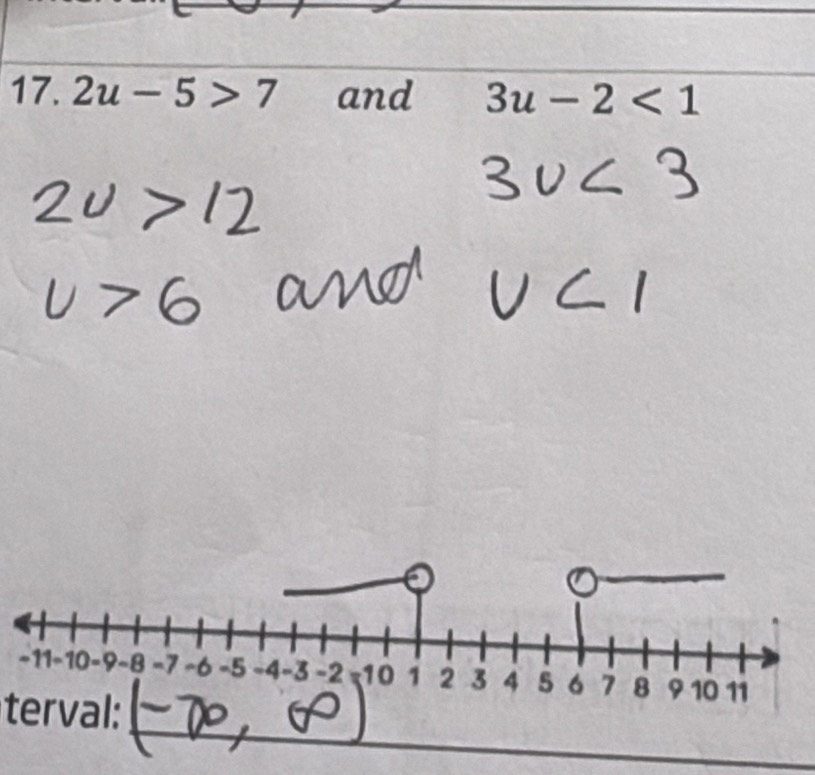 17. 2u − 5 > 7 and 3u − 2 < 1
2u > 12 3u < 3
u > 6 and u < 1
-11 -10 -9 -8 -7 -6 -5 -4 -3 -2 -1 0 1 2 3 4 5 6 7 8 9 10 11
terval: (-∞, ∞)